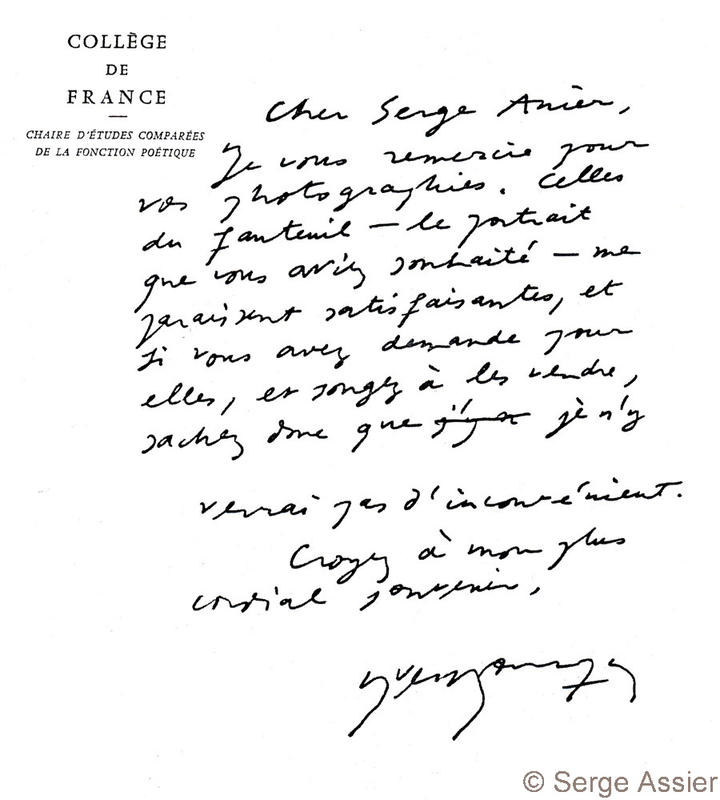 COLLÈGE
DE
FRANCE
CHAIRE D'ÉTUDES COMPARÉES
DE LA FONCTION POÉTIQUE
Cher Serge Assier,
Je vous remercie pour
vos photographies. Celles
du fauteuil — le portrait
que vous aviez souhaité — me
paraissent satisfaisantes, et
si vous avez demande pour
elles, et songez à les vendre,
sachez donc que j'y je n'y
verrai pas d'inconvénient.
Croyez à mon plus
cordial souvenir,
Yves Bonnefoy
© Serge Assier